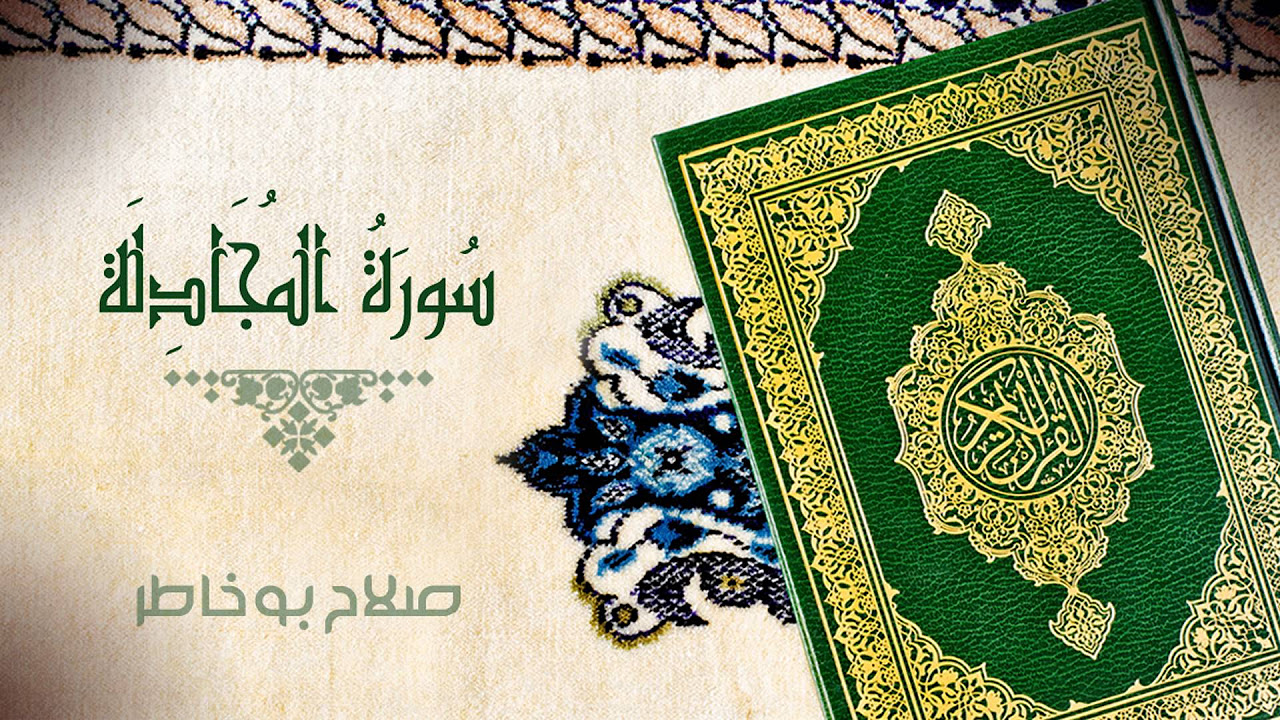 سُورَةُ المُجَادِلَة
صلاح بو خاطر
القرآن الكريم